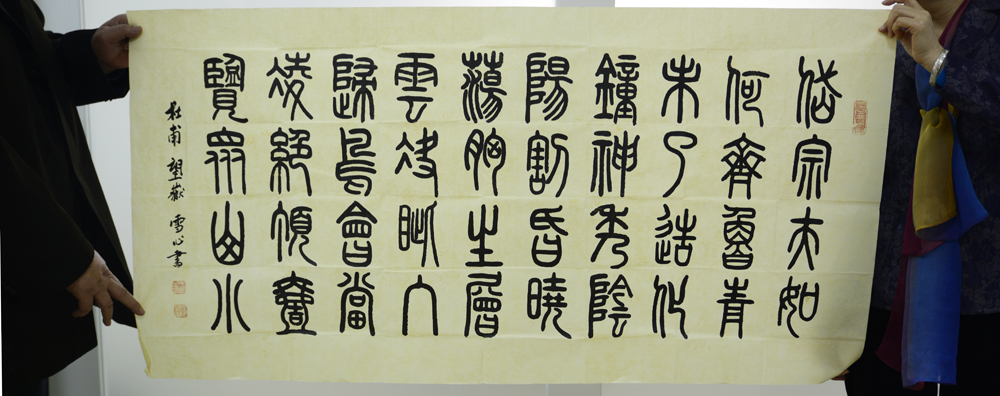 岱宗夫如
何齊魯青
未了造化
鐘神秀陰
陽割昏曉
蕩胸生層
雲決眥入
歸鳥會當
凌絕頂壹
覽眾山小
杜甫望嶽雪心書